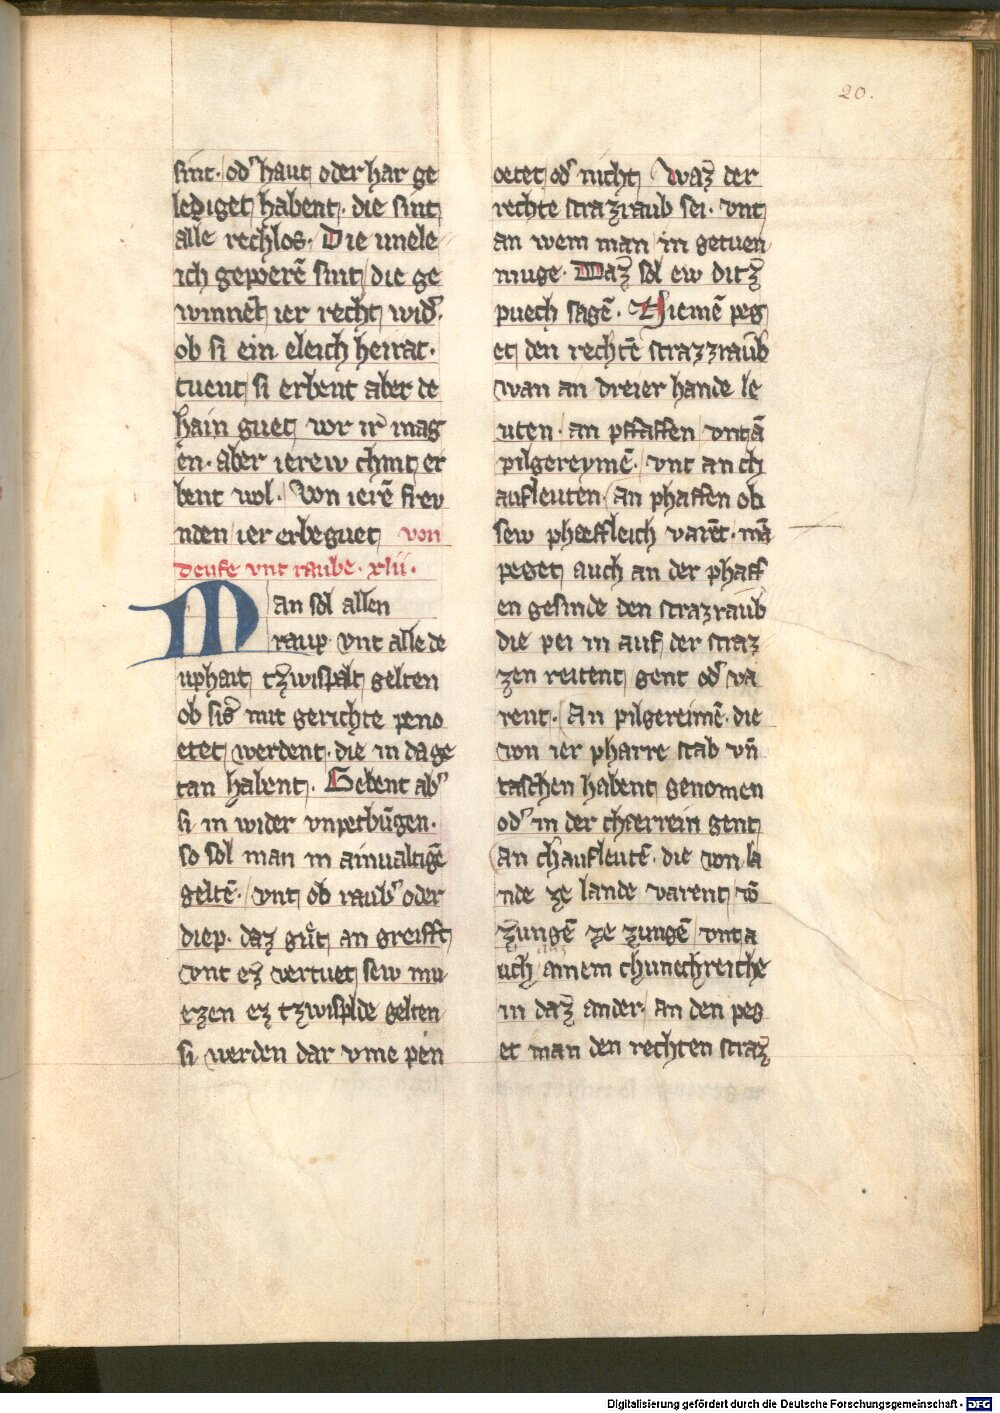 20.
sint· od' haut oder har ge
lediget habent· die sint
alle rechlos· Die unele
ich geporē sint die ge
winnēt ier recht wid'·
ob si ein eleich heirat·
tuent si erbent aber de
hain guet vor ir mag
en· aber ierew chint er
bent wol· Von ierē freu
nden ier erbeguet von
deufe vnt raube· xlii·
Man sol allen
raup vnt alle de
uphait tzwispalt gelten
ob sis mit gerichte peno
etet werdent· die in da ge
tan habent· Gebent ab'
si in wider vnpetbūgen·
so sol man in ainualtigē
geltē· vnt ob raub' oder
diep· daz gůt an greifft
vnt ez vertuet sew mu
ezen ez tzwispilde gelten
si werden dar vme pen
oetet od' nicht Waz der
rechte strazraub sei· vnt
an wem man in getuen
muge· Daz sol ew ditz
puech sagē· Niemē peg
et den rechtē strazzraub
wan an dreier hande le
uten· an pfaffen vnt ā
pilgereymē· vnt an ch
aufleuten· An phaffen ob
sew phaeffleich varēt· mā
peget auch an der phaff
en gesinde den strazraub
die pei in auf der straz
zen reitent gent od' va
rent· An pilgereimē· die
von ier pharre stab vn̄
taschen habent genomen
od' in der chaerrein gent
An chaufleutē· die von la
nde ze lande varent vō
zungē ze zungē vnt a
uch ainem chunechreiche
in daz ander· an den peg
et man den rechten straz
Digitalisierung gefördert durch die Deutsche Forschungsgemeinschaft - DFG